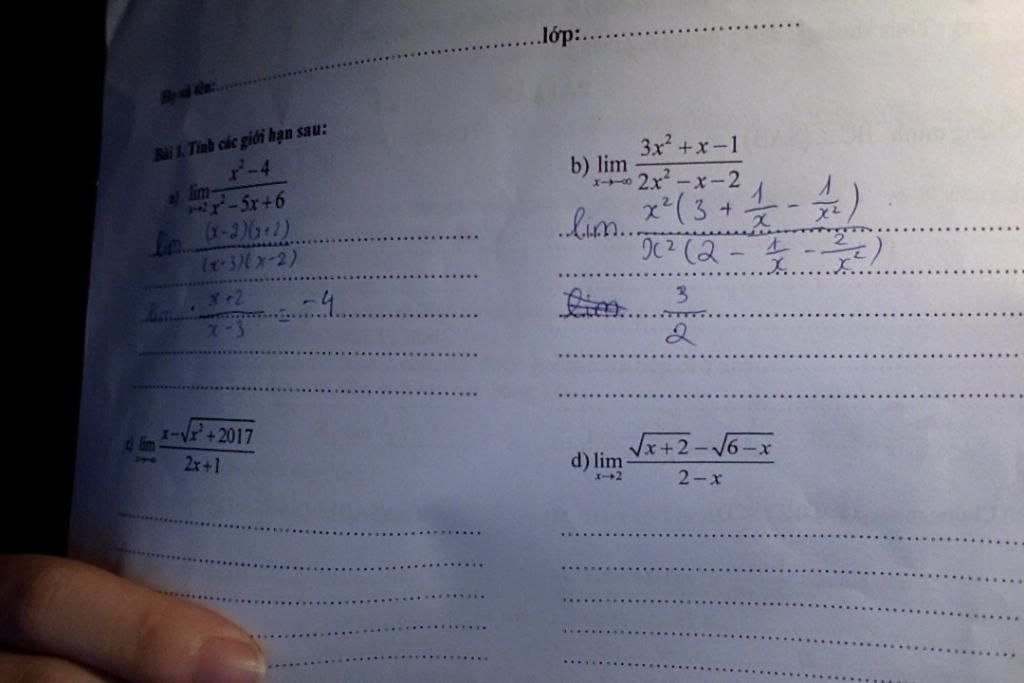 lớp:
Họ và tên:
Bài 1. Tính các giới hạn sau:
a) lim x→2 (x² − 4)/(x² − 5x + 6)
lim (x-2)(x+2)/(x-3)(x-2)
lim x+2/x-3 = -4
b) lim x→−∞ (3x² + x − 1)/(2x² − x − 2)
lim x²(3 + 1/x - 1/x²)/x²(2 - 1/x - 2/x²)
lim 3/2
c) lim (x − √(x² + 2017))/(2x + 1)
d) lim x→2 (√(x + 2) − √(6 − x))/(2 − x)